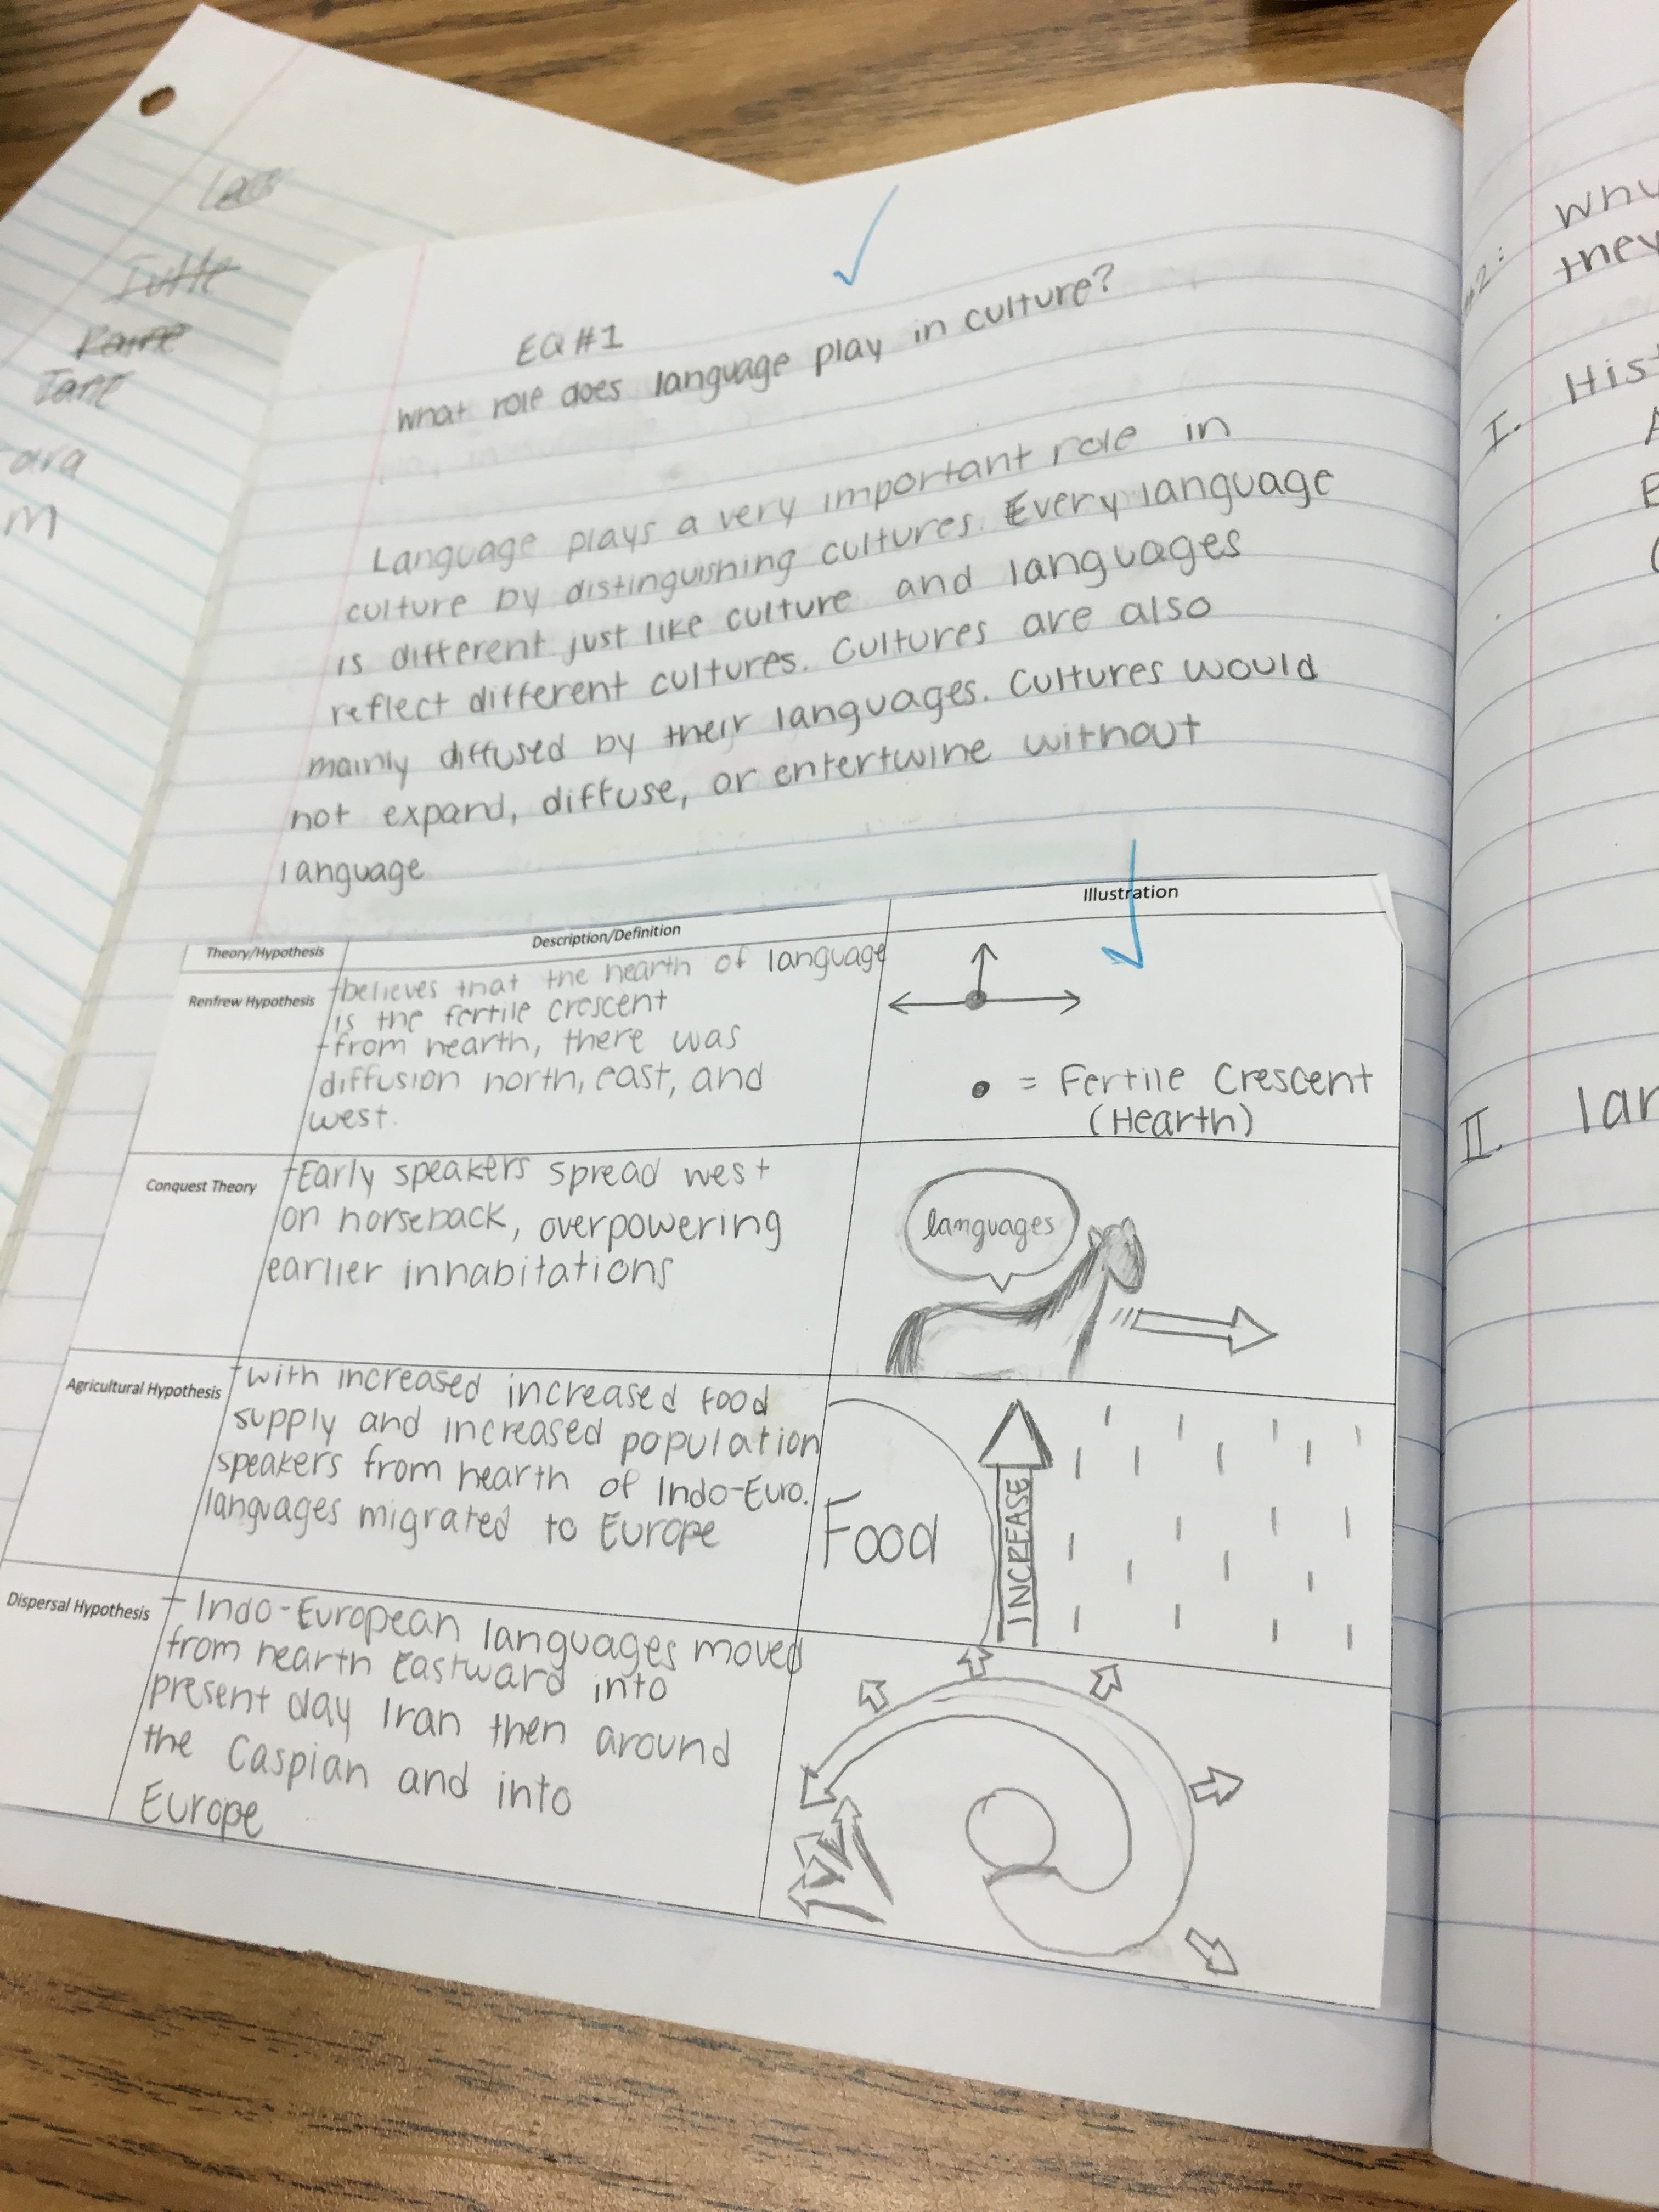 EQ #1
What role does language play in culture?
Language plays a very important role in
culture by distinguishing cultures. Every language
is different just like culture and languages
reflect different cultures. Cultures are also
mainly diffused by their languages. Cultures would
not expand, diffuse, or entertwine without
language
Theory/Hypothesis Description/Definition Illustration
Renfrew Hypothesis
-believes that the hearth of language
is the fertile crescent
-from hearth, there was
diffusion north, east, and
west.
• = Fertile Crescent
(Hearth)
Conquest Theory
-Early speakers spread west
on horseback, overpowering
earlier inhabitations
languages
Agricultural Hypothesis
-with increased increased food
supply and increased population
speakers from hearth of Indo-Euro.
languages migrated to Europe
Food
INCREASE
Dispersal Hypothesis
- Indo-European languages moved
from hearth Eastward into
present day Iran then around
the Caspian and into
Europe
#2: Why
they
I. Hist
A
B
II. lan